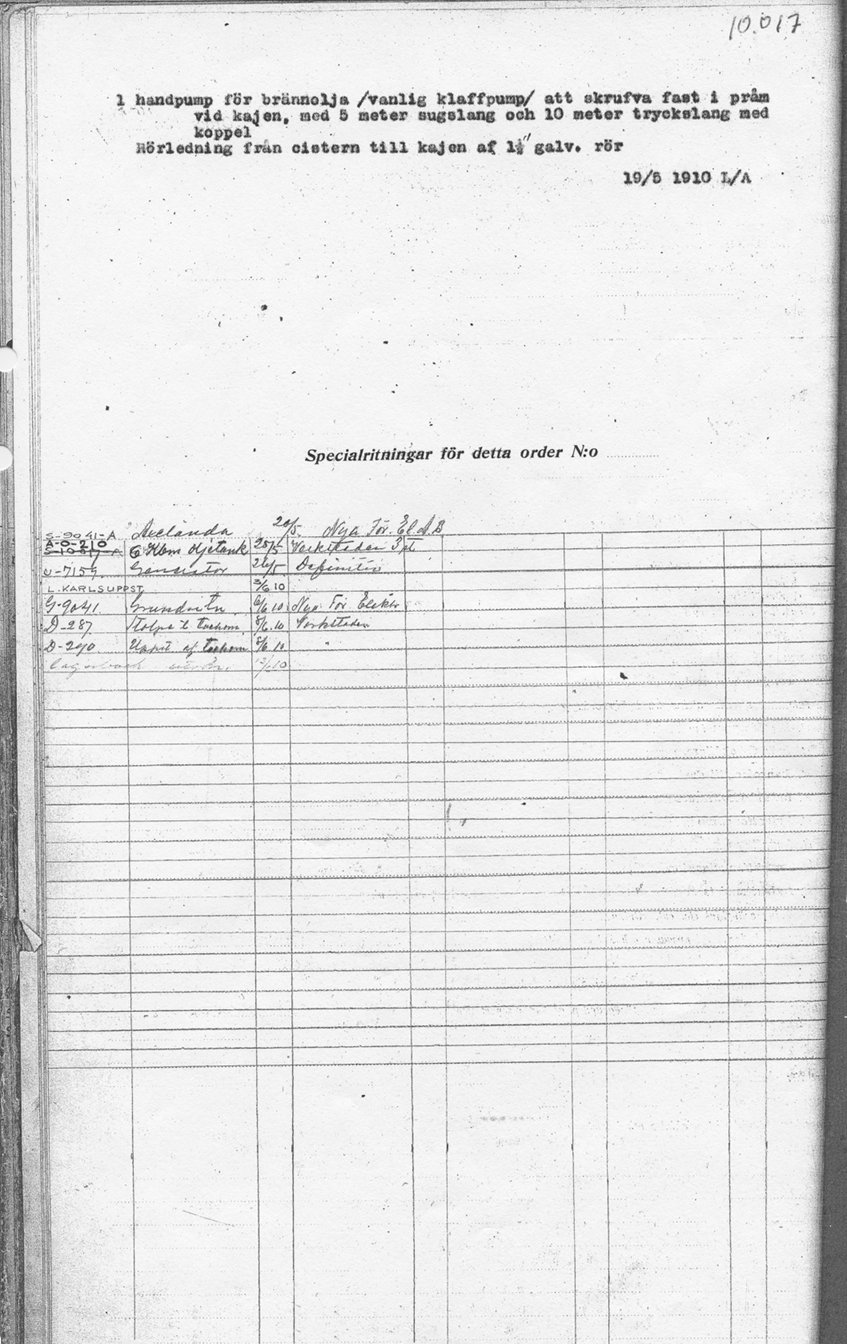 10.017
1 handpump för brännolja /vanlig klaffpump/ att skrufva fast i pråm
vid kajen, med 5 meter sugslang och 10 meter tryckslang med
koppel
Rörledning från cistern till kajen af 1¼" galv. rör
19/5 1910 L/A
Specialritningar för detta order N:o
S-9041-A 20/5. Nya För. El. A.B
A-0-210 6 Kbm Oljetank 25/5 Verkstaden 3 st
U-7159 Generator 26/5 Definitiv
L. KARLSUPPST. 3/6 10
G-9041 6/6 10 Nya För.
D-287 Stolpe t. 8/6.10 Verkstaden
D-290 af 8/6 10 "